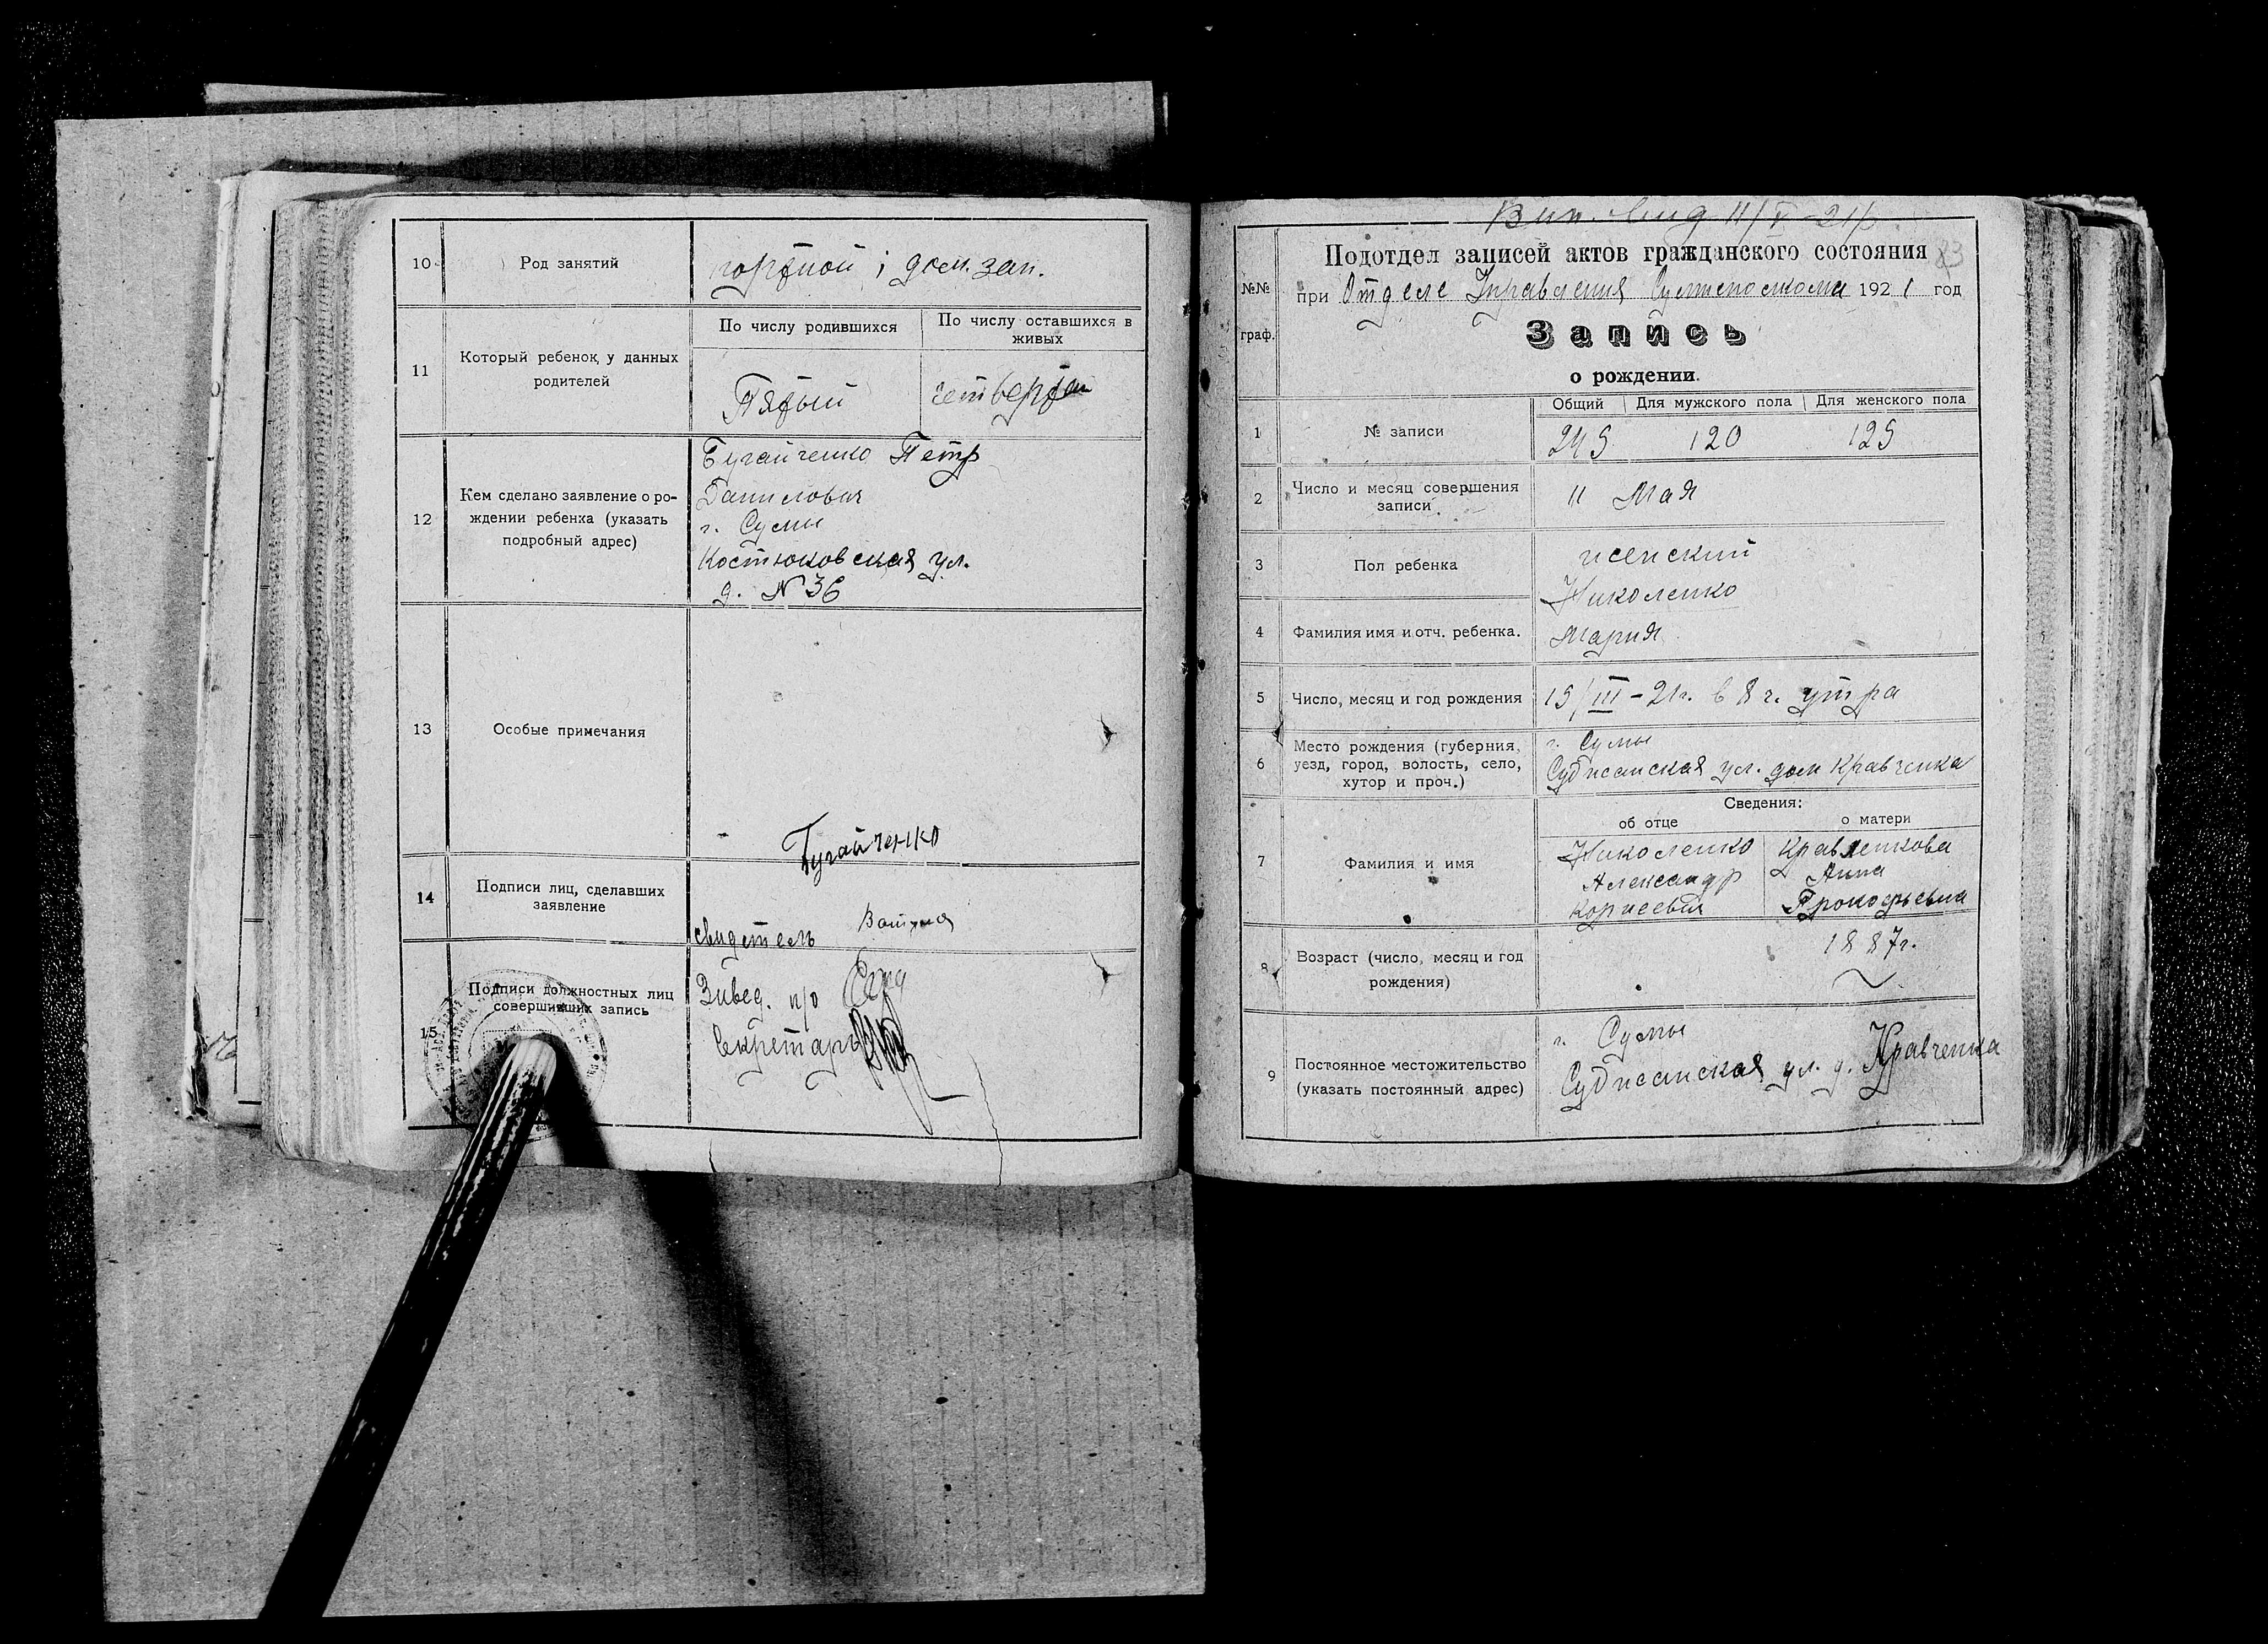 10 Род занятий портной; дом. зан.
11 Который ребенок, у данных родителей
По числу родившихся По числу оставшихся в живых
Пятый четвертый
12 Кем сделано заявление о ро-
ждении ребенка (указать
подробный адрес)
Бугайченко Петр
Данилович
г. Сумы
Костюковская ул.
д. № 36
13 Особые примечания
Бугайченко
14 Подписи лиц, сделавших
заявление
свидетель
15 Подписи должностных лиц
совершивших запись
Завед. п/о
Секретарь
11/V-21
83
№№ граф.
Подотдел записей актов гражданского состояния
при Отделе Управления 1921 год
Запись
о рождении.
Общий Для мужского пола Для женского пола
1 № записи 245 120 125
2 Число и месяц совершения
записи
11 Мая
3 Пол ребенка женский
4 Фамилия имя и отч. ребенка.
Николенко
Мария
5 Число, месяц и год рождения 15/III-21г. в 8 ч. утра
6 Место рождения (губерния,
уезд, город, волость, село,
хутор и проч.)
г. Сумы
Суджанская ул. дом Кравченка
Сведения:
об отце о матери
7 Фамилия и имя
Николенко
Александр
Корнеевич
Кравченкова
Анна
Прокофьевна
8 Возраст (число, месяц и год
рождения)
1887г.
9 Постоянное местожительство
(указать постоянный адрес)
г. Сумы
Суджанская ул. д. Кравченка